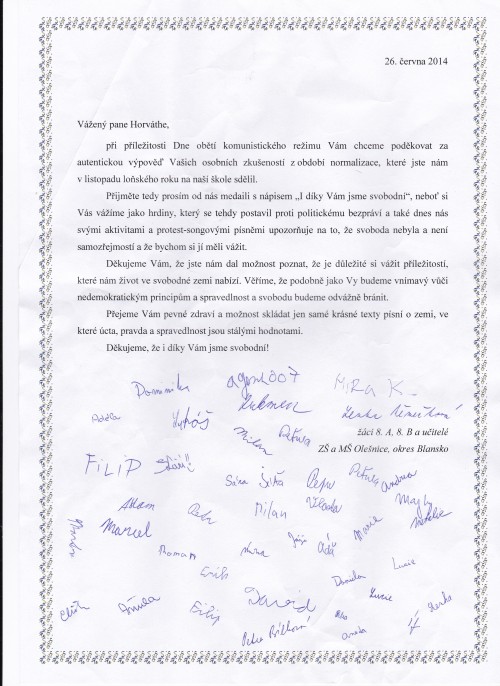 26. června 2014
Vážený pane Horváthe,
při příležitosti Dne obětí komunistického režimu Vám chceme poděkovat za
autentickou výpověď Vašich osobních zkušeností z období normalizace, které jste nám
v listopadu loňského roku na naší škole sdělil.
Přijměte tedy prosím od nás medaili s nápisem „I díky Vám jsme svobodní“, neboť si
Vás vážíme jako hrdiny, který se tehdy postavil proti politickému bezpráví a také dnes nás
svými aktivitami a protest-songovými písněmi upozorňuje na to, že svoboda nebyla a není
samozřejmostí a že bychom si jí měli vážit.
Děkujeme Vám, že jste nám dal možnost poznat, že je důležité si vážit příležitostí,
které nám život ve svobodné zemi nabízí. Věříme, že podobně jako Vy budeme vnímavý vůči
nedemokratickým principům a spravedlnost a svobodu budeme odvážně bránit.
Přejeme Vám pevné zdraví a možnost skládat jen samé krásné texty písní o zemi, ve
které úcta, pravda a spravedlnost jsou stálými hodnotami.
Děkujeme, že i díky Vám jsme svobodní!
Dominika agent007 MíRA K.
Adéla Lukáš
Milan Petra
žáci 8. A, 8. B a učitelé
ZŠ a MŠ Olešnice, okres Blansko
FILIP
Sára Jitka Pepa Petra Andrea
Adam Milan Vlasta Magdy
Marcel Marie Natálie
Roman
Erik Lucie
Daniela
Filip David Lucie Lenka
Aneta